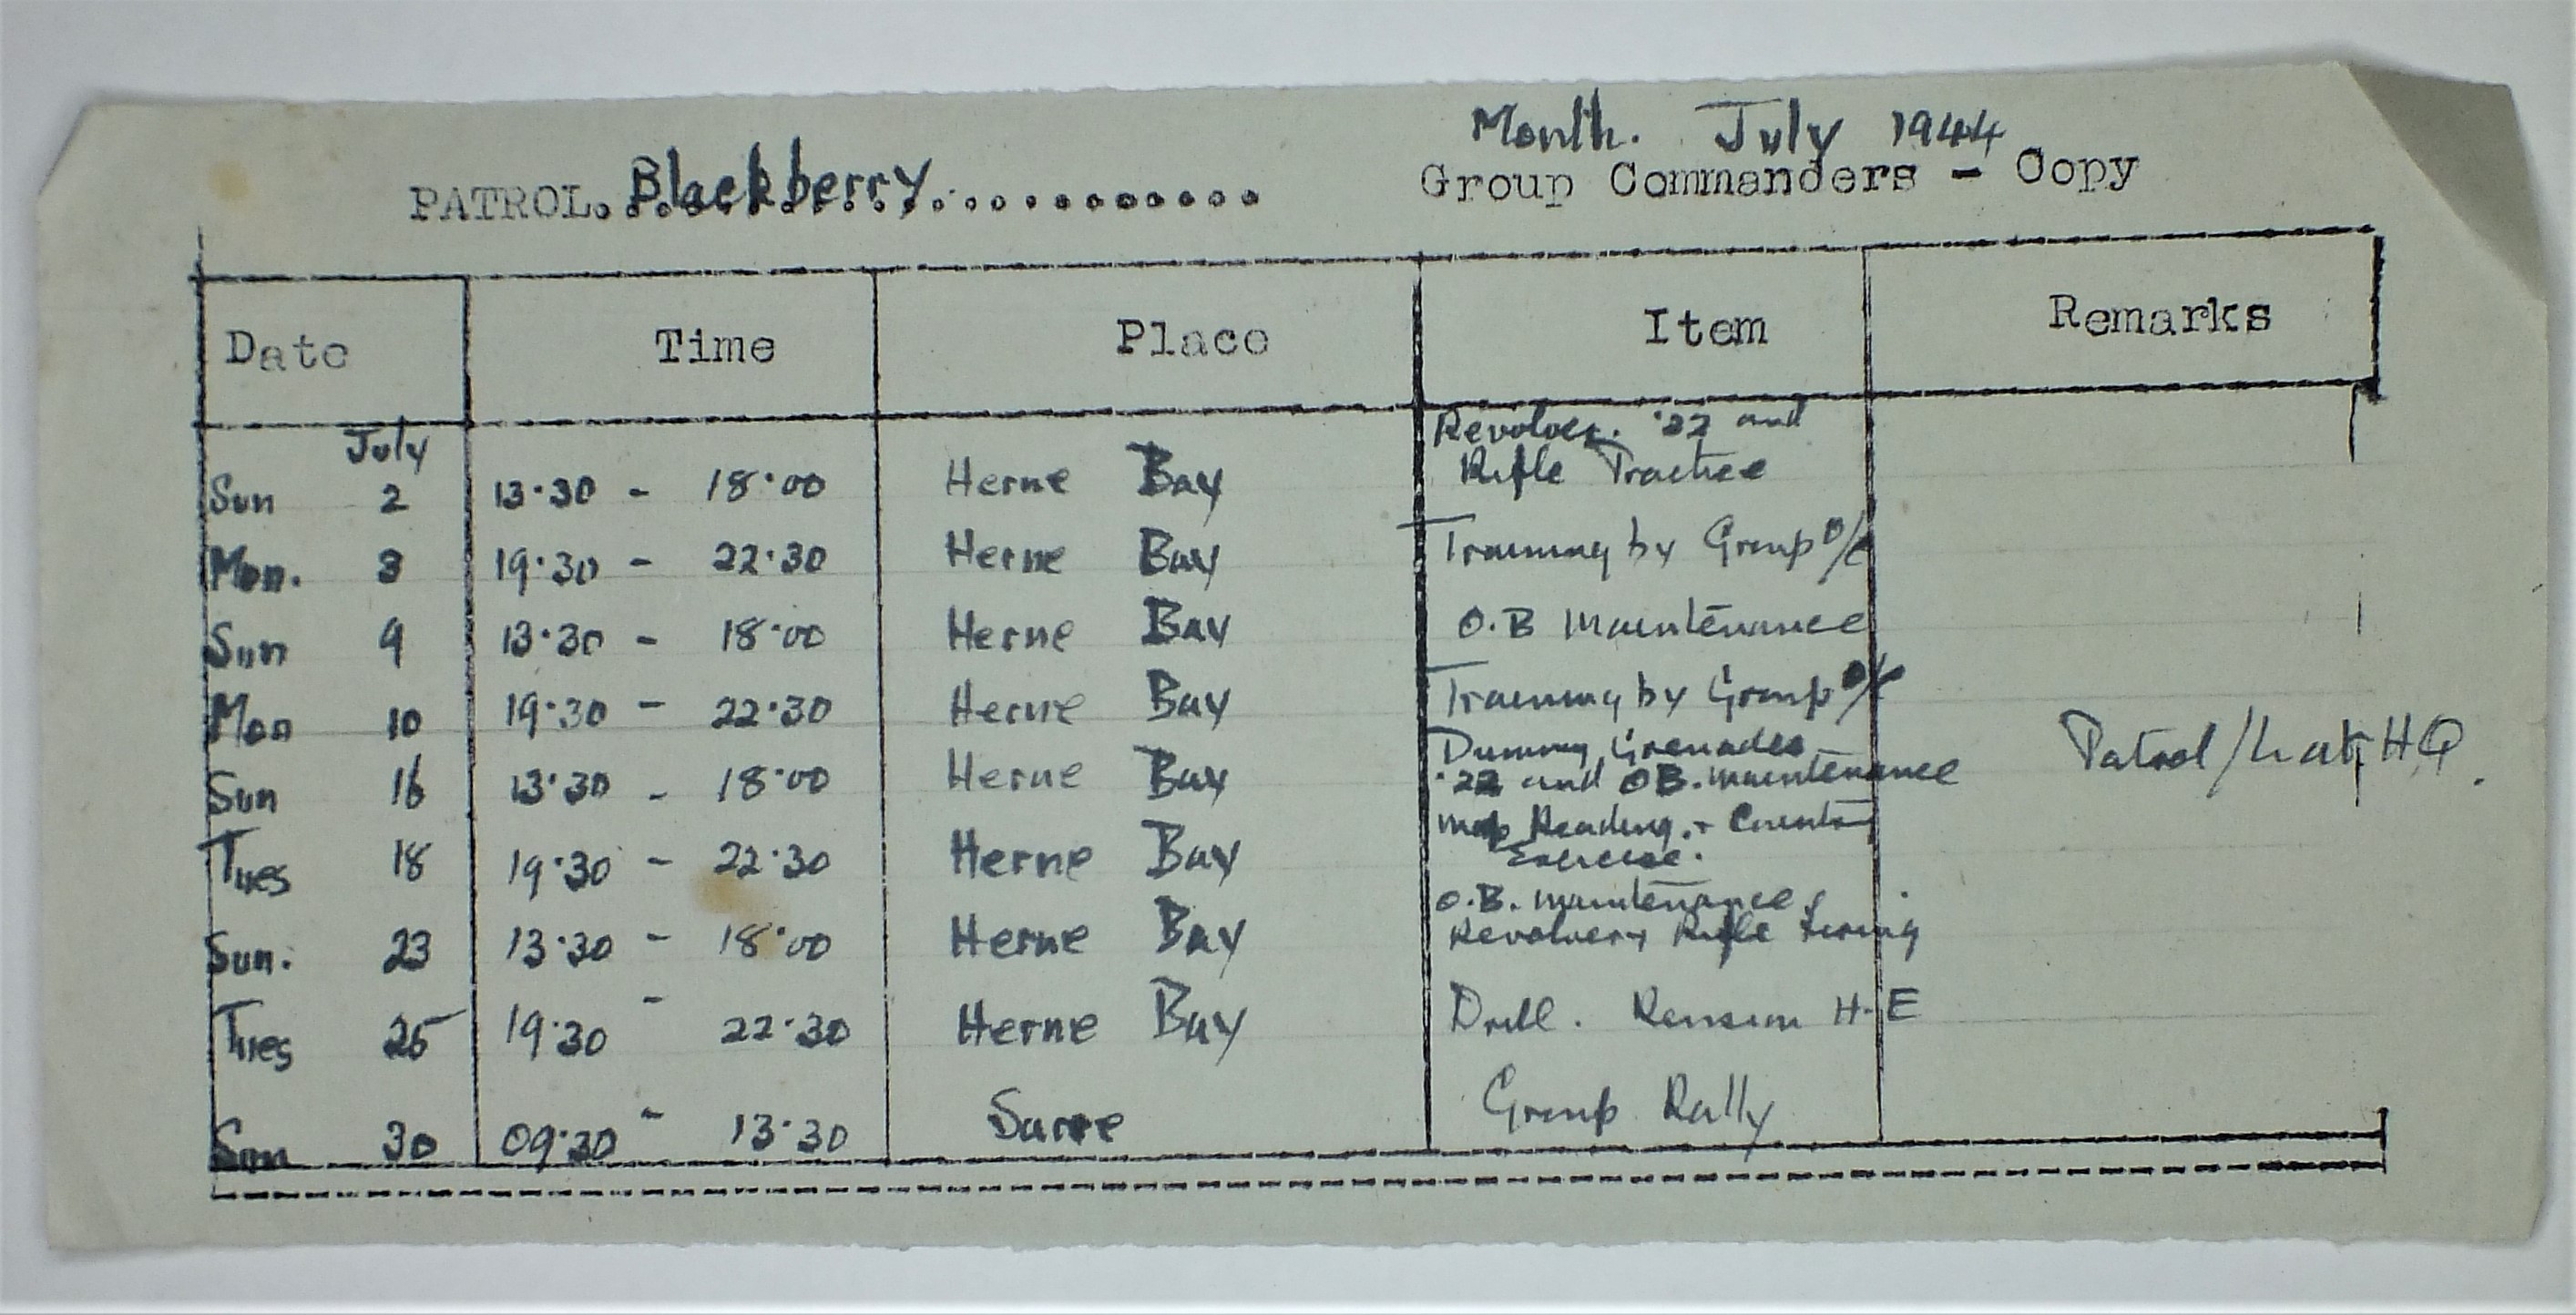 Month. July 1944
PATROL. Blackberry............ Group Commanders - Copy
Date Time Place Item Remarks
July Revolver. '22 and
Sun 2 13·30 - 18·00 Herne Bay Rifle Practice
Mon. 3 19·30 - 22·30 Herne Bay Training by Group O/C
Sun 9 13·30 - 18·00 Herne Bay O.B Maintenance
Mon 10 19·30 - 22·30 Herne Bay Training by Group O/C
Dummy Grenades
Sun 16 13·30 - 18·00 Herne Bay ·22 and OB. maintenance Patrol / HQ.
Map Reading. +
Tues 18 19·30 - 22·30 Herne Bay Exercise.
O.B. maintenance,
Sun. 23 13·30 - 18·00 Herne Bay Revolver + Rifle firing
Tues 25 19·30 - 22·30 Herne Bay Drill. Revision H.E
Sun 30 09·30 - 13·30 Sarre Group Rally